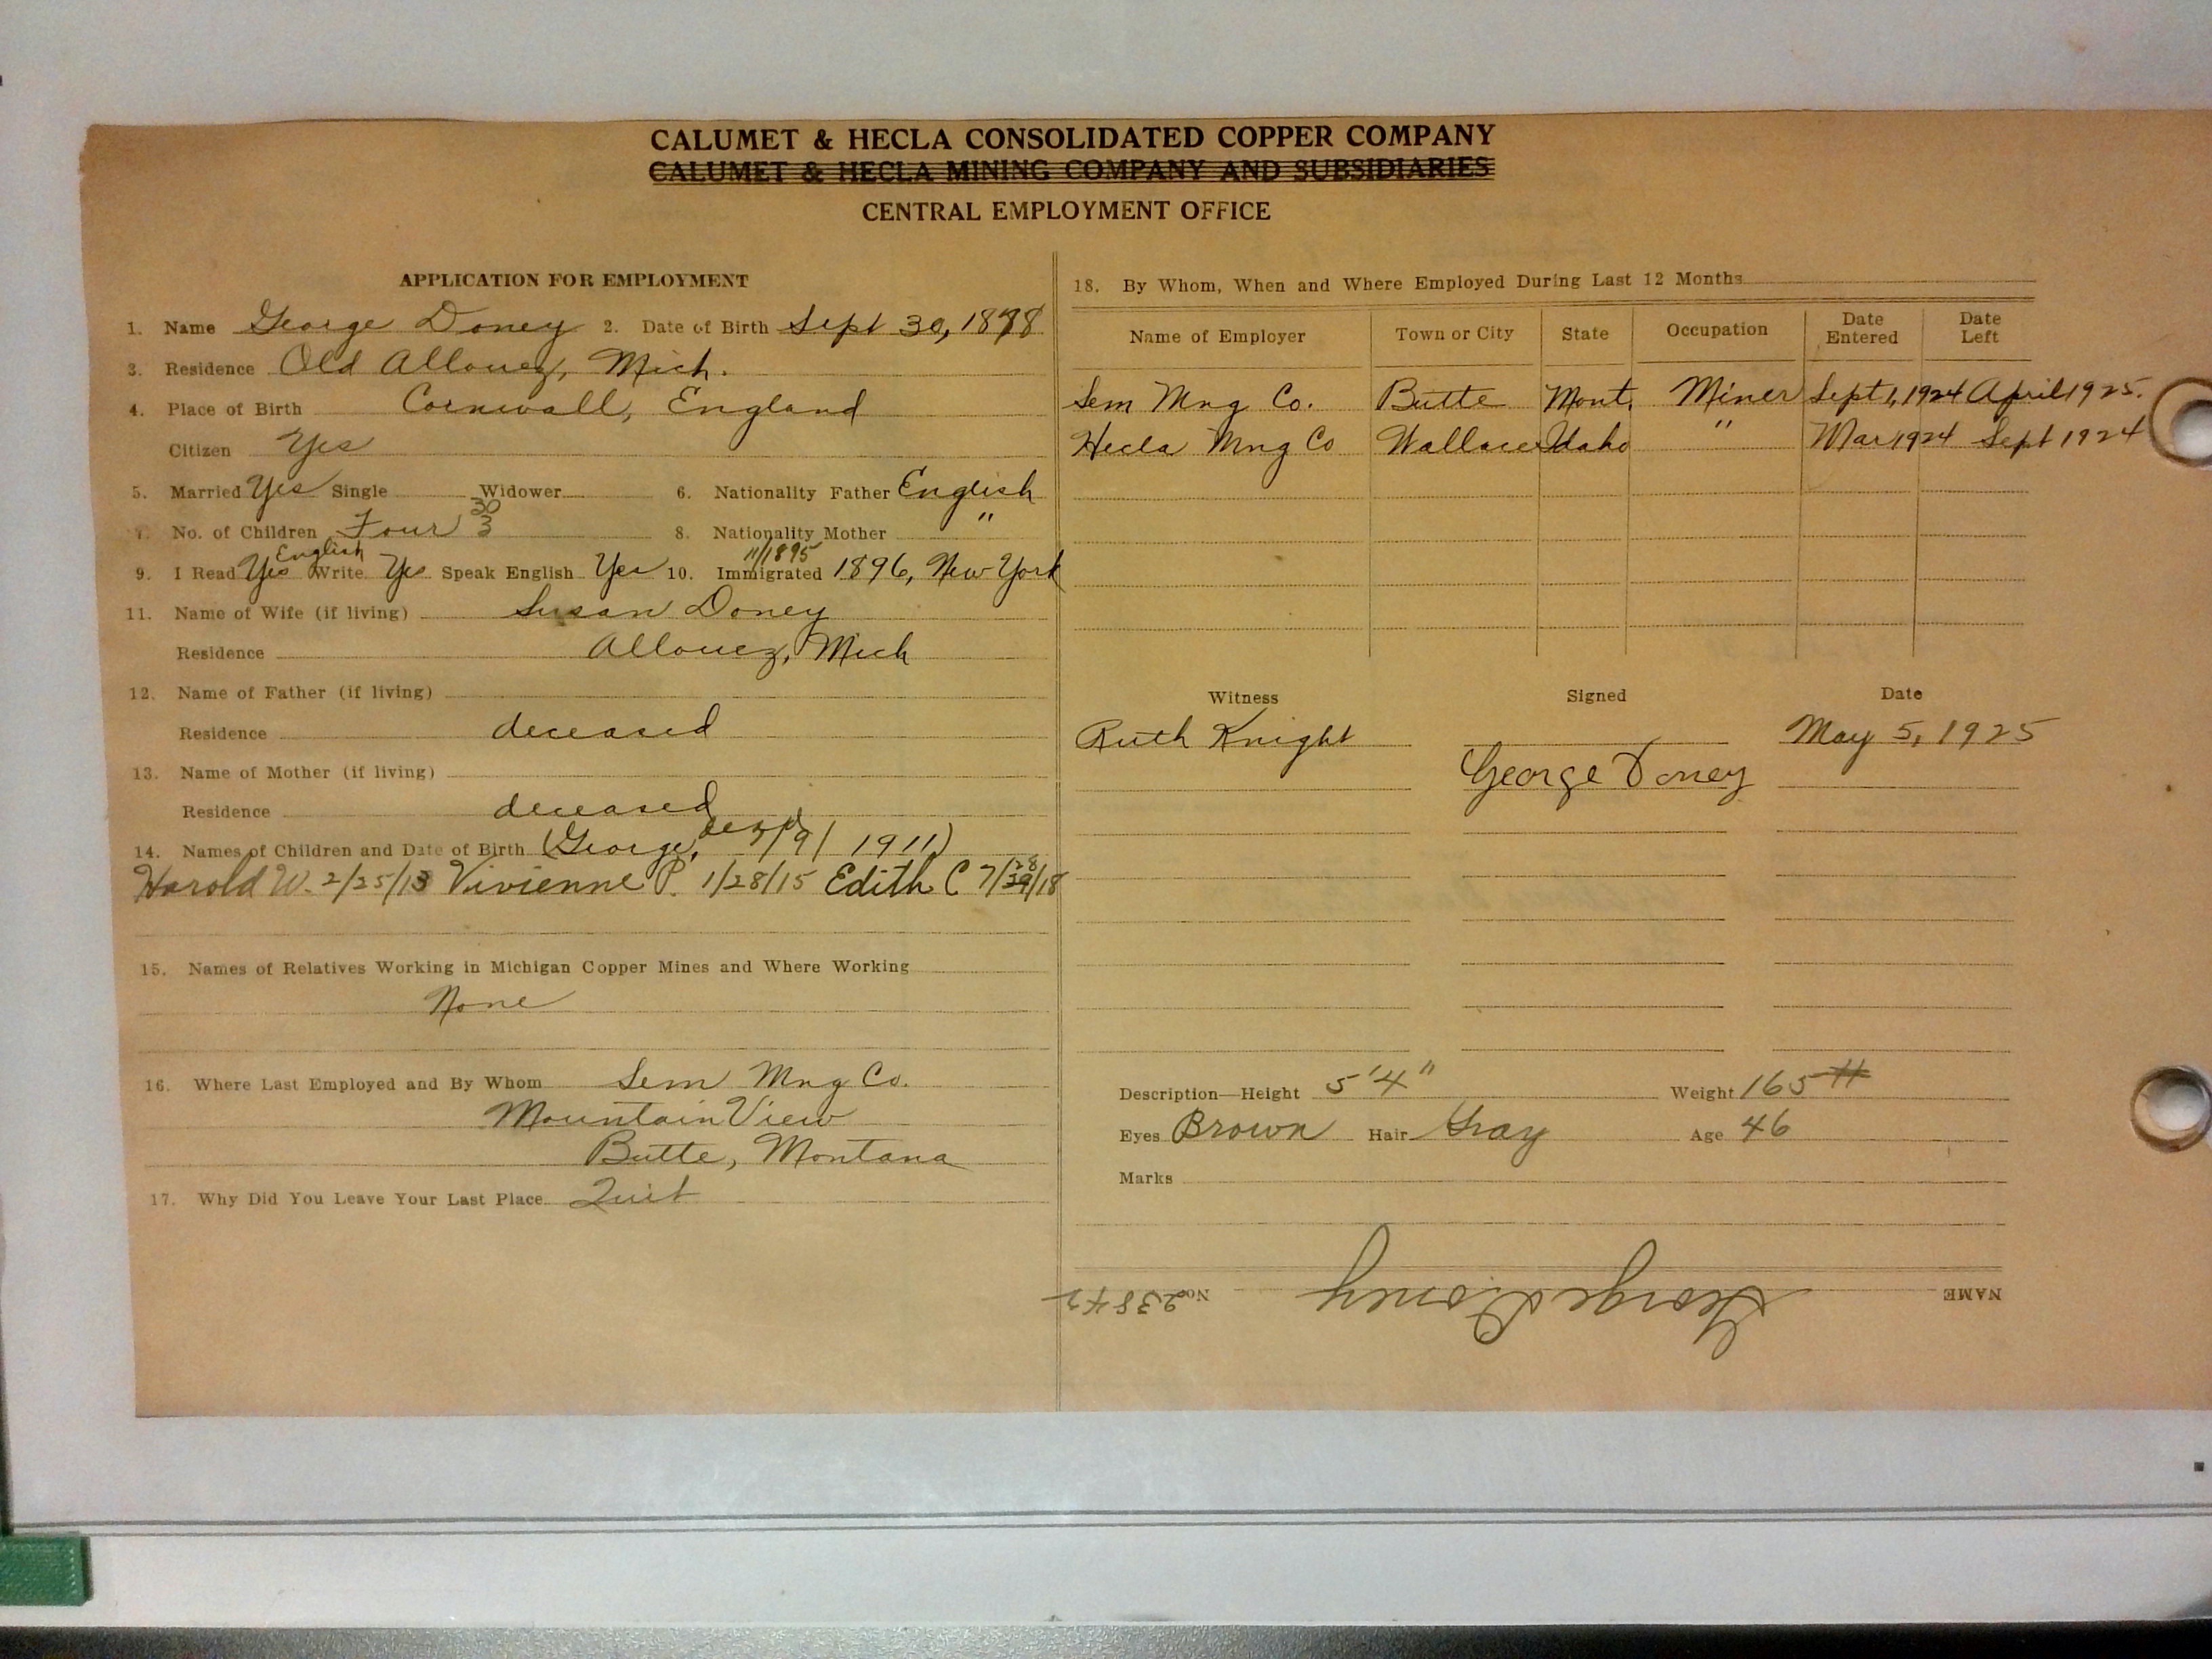 CALUMET & HECLA CONSOLIDATED COPPER COMPANY
CALUMET & HECLA MINING COMPANY AND SUBSIDIARIES
CENTRAL EMPLOYMENT OFFICE
APPLICATION FOR EMPLOYMENT
1. Name George Doney 2. Date of Birth Sept 30, 1878
3. Residence Old Allouez, Mich.
4. Place of Birth Cornwall, England
Citizen Yes
5. Married Yes Single Widower 6. Nationality Father English
30
7. No. of Children Four 3 8. Nationality Mother "
English 11/1895
9. I Read Yes Write Yes Speak English Yes 10. Immigrated 1896, New York
11. Name of Wife (if living) Susan Doney
Residence Allouez, Mich
12. Name of Father (if living)
Residence deceased
13. Name of Mother (if living)
Residence deceased
dead
14. Names of Children and Date of Birth (George, 3/9/1911)
Harold W. 2/25/13 Vivienne P. 1/28/15 Edith C 7/28/18
15. Names of Relatives Working in Michigan Copper Mines and Where Working
None
16. Where Last Employed and By Whom Sem Mng Co.
Mountain View
Butte, Montana
17. Why Did You Leave Your Last Place Quit
18. By Whom, When and Where Employed During Last 12 Months
Name of Employer Town or City State Occupation Date Entered Date Left
Sem Mng Co. Butte Mont. Miner Sept 1, 1924 April 1925.
Hecla Mng Co Wallace Idaho " Mar 1924 Sept 1924
Witness Signed Date
Ruth Knight May 5, 1925
George Doney
Description—Height 5'4" Weight 165 #
Eyes Brown Hair Gray Age 46
Marks
NAME George Doney No. 23842